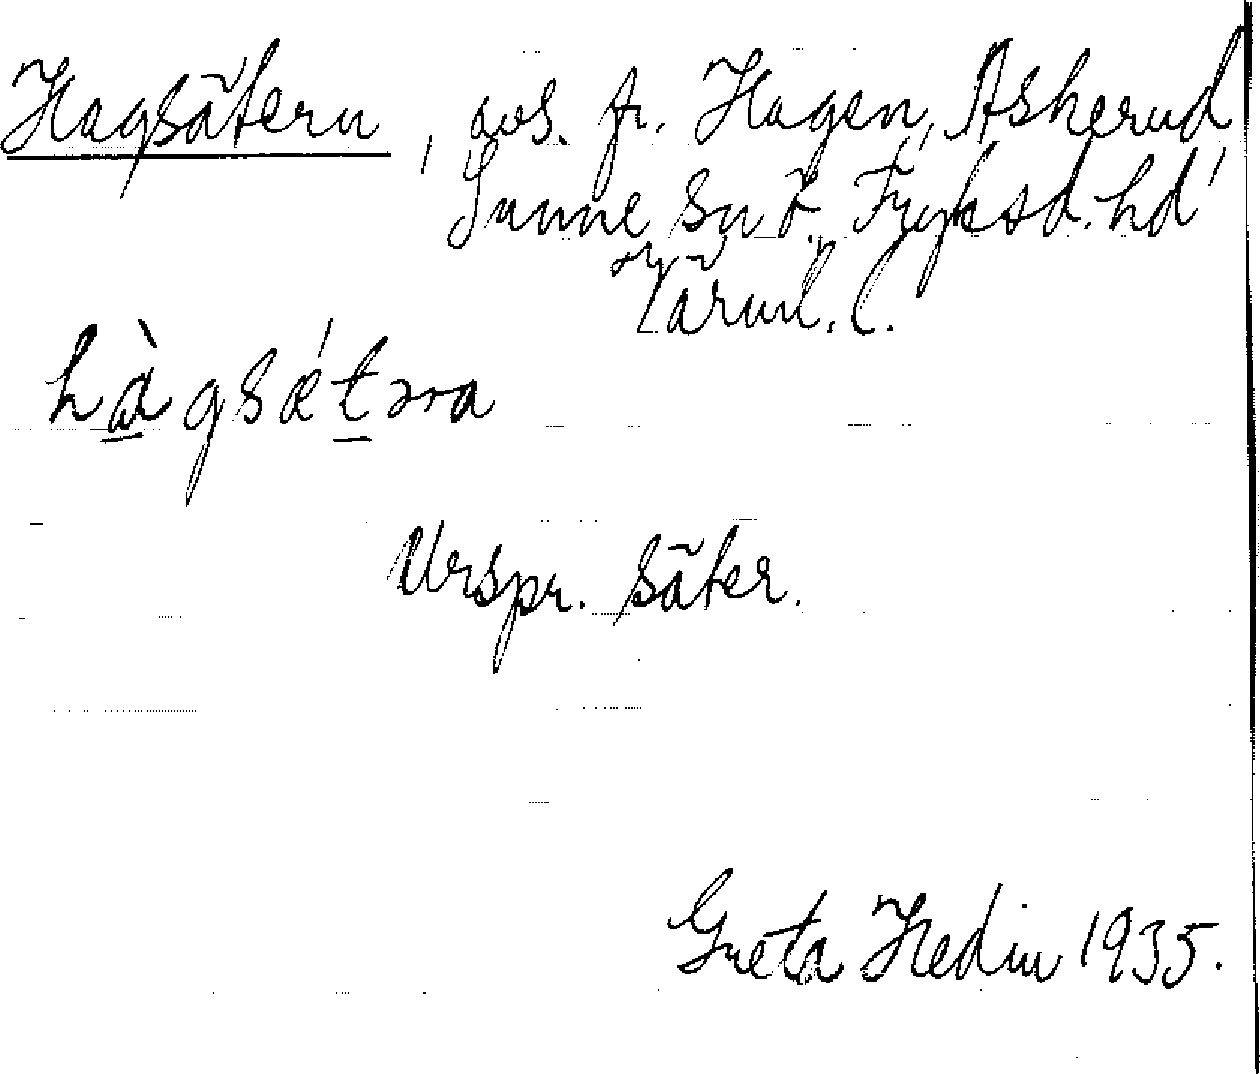 Hagsätern, avs. fr. Hagen, Askerud,
Sunne sn Ö. Fryksd. hd
Värml. l.
hàgsǽtəra
Urspr. säter.
Greta Hedin 1935.